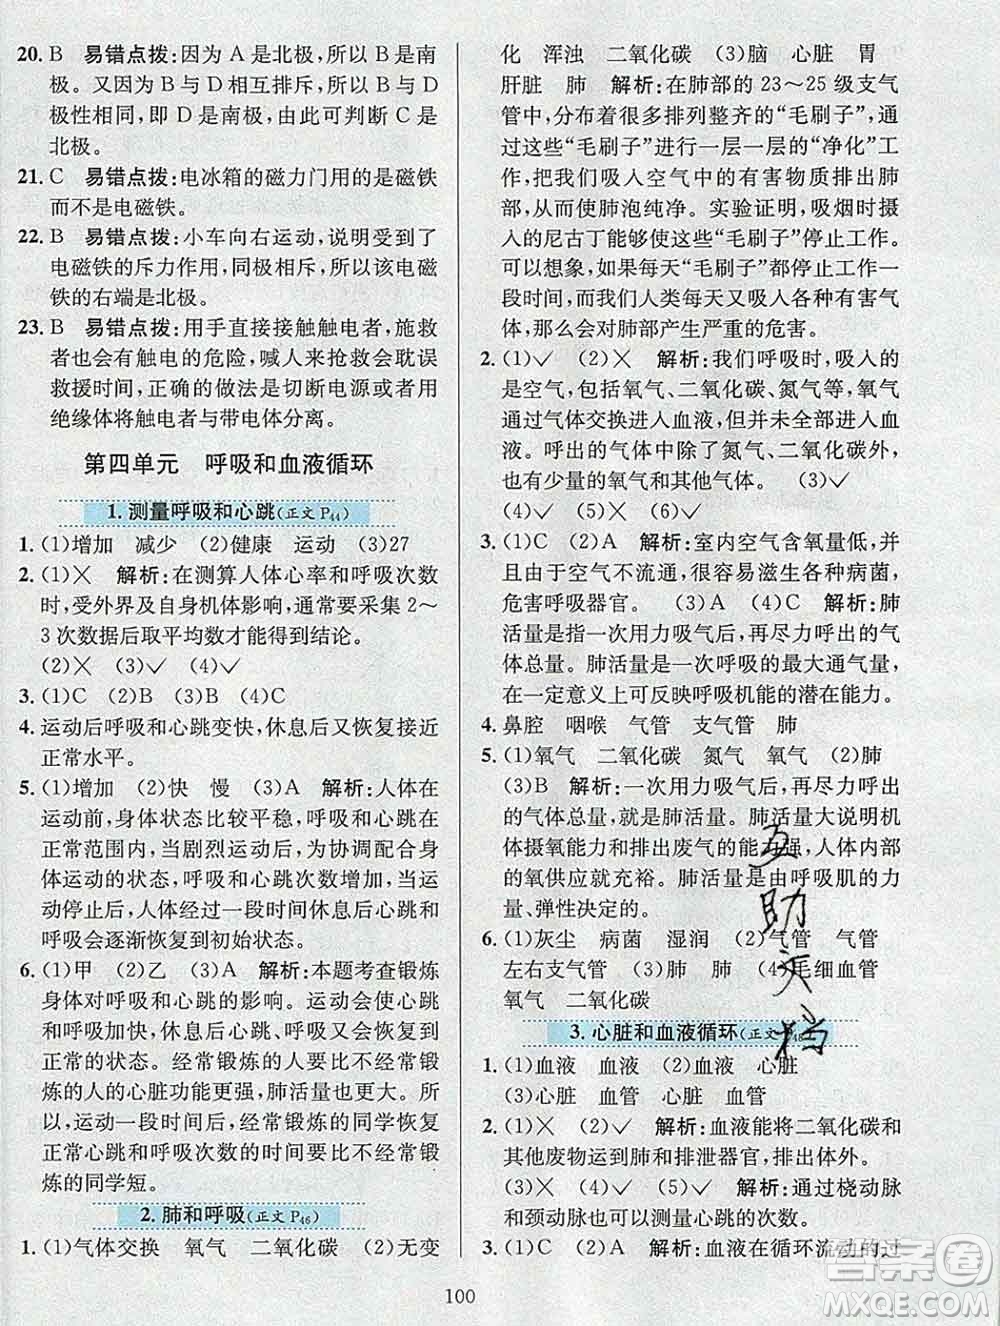 20. B 易错点拨:因为 A 是北极,所以 B 是南
极。又因为 B 与 D 相互排斥,所以 B 与 D
极性相同,即 D 是南极,由此可判断 C 是
北极。
21. C 易错点拨:电冰箱的磁力门用的是磁铁
而不是电磁铁。
22. B 易错点拨:小车向右运动,说明受到了
电磁铁的斥力作用,同极相斥,所以该电磁
铁的右端是北极。
23. B 易错点拨:用手直接接触触电者,施救
者也会有触电的危险,喊人来抢救会耽误
救援时间,正确的做法是切断电源或者用
绝缘体将触电者与带电体分离。
第四单元 呼吸和血液循环
1. 测量呼吸和心跳(正文 P44)
1. (1)增加 减少 (2)健康 运动 (3)27
2. (1)✕ 解析:在测算人体心率和呼吸次数
时,受外界及自身机体影响,通常要采集 2～
3 次数据后取平均数才能得到结论。
(2)✕ (3)✓ (4)✓
3. (1)C (2)B (3)B (4)C
4. 运动后呼吸和心跳变快,休息后又恢复接近
正常水平。
5. (1)增加 (2)快 慢 (3)A 解析:人体在
运动前,身体状态比较平稳,呼吸和心跳都在
正常范围内,当剧烈运动后,为协调配合身
体的状态,呼吸和心跳次数都会增加,当运
动停止后,人体经过一段时间休息后心跳和
呼吸会逐渐恢复到初始状态。
6. (1)甲 (2)乙 (3)A 解析:本题考查锻炼
身体对呼吸和心跳的影响。运动会使心跳
和呼吸加快,休息一段时间后又会恢复到正
常的状态。经常锻炼的人要比不经常锻
炼的人的心脏功能更强,肺活量更大。所
以,运动一段时间后,经常锻炼的同学恢复
正常的心跳和呼吸次数的时间要比不经常
锻炼的同学短。
2. 肺和呼吸(正文 P46)
1. (1)气体交换 氧气 二氧化碳 (2)无变
化 浑浊 二氧化碳 (3)脑 心脏 胃
肝脏 肺 解析:在肺部的 23～25 级支气
管中,分布着很多排列整齐的“毛刷子”,
通过这些“毛刷子”进行一层一层的“净化”工
作,把我们吸入空气中的有害物质排出肺
部,以使肺泡纯净。实验证明,吸烟时摄
入的尼古丁能够使这些“毛刷子”停止工作。
可以想象,如果每天“毛刷子”都停止工作一
段时间,而我们人类每天又吸入各种有害气
体,那么会对肺部产生严重的危害。
2. (1)✓ (2)✕ 解析:我们呼吸时,吸入的
是空气,包括氧气、二氧化碳、氮气等,氧气
通过气体交换进入血液,但并未全部进入血
液。呼出的气体中除了氮气、二氧化碳外,
还有没被吸收的氧气和其他气体。 (3)✓
(4)✓ (5)✕ (6)✓
3. (1)C (2)A 解析:室内空气含氧量低,并
且由于空气不流通,很容易滋生各种病菌,
危害呼吸器官。 (3)A (4)B 解析:肺
活量是指一次用力吸气后,再尽力呼出的气
体总量。肺活量是一次呼吸的最大通气量,
在一定意义上可反映呼吸机能的潜在能力。
4. 鼻腔 咽喉 气管 支气管 肺
5. (1)氧气 二氧化碳 氮气 氧气 (2)肺
(3)B 解析:一次用力吸气后,再尽力呼出
的气体总量,就是肺活量。肺活量大说明机
体摄氧能力和排出废气的能力强,人体内部
的氧供应就充裕。肺活量是由呼吸肌的力
量、弹性决定的。
6. (1)灰尘 病菌 湿润 (2)气管 气管
左右支气管 (3)肺 肺 (4)毛细血管
氧气 二氧化碳
3. 心脏和血液循环(正文 P48)
1. (1)血液 血液 (2)血液 心脏
(3)心脏 血管 心脏 血管
2. (1)✓ (2)✓ 解析:血液能将二氧化碳和
其他废物运到肺和排泄器官,排出体外。
(3)✕ (4)✓ (5)✓ 解析:通过桡动脉
和颈动脉可以测量心跳的次数。
3. (1)C (2)A 解析:血液在循环流动的过
100
互
助
文
档
答案圈
MXQE.COM